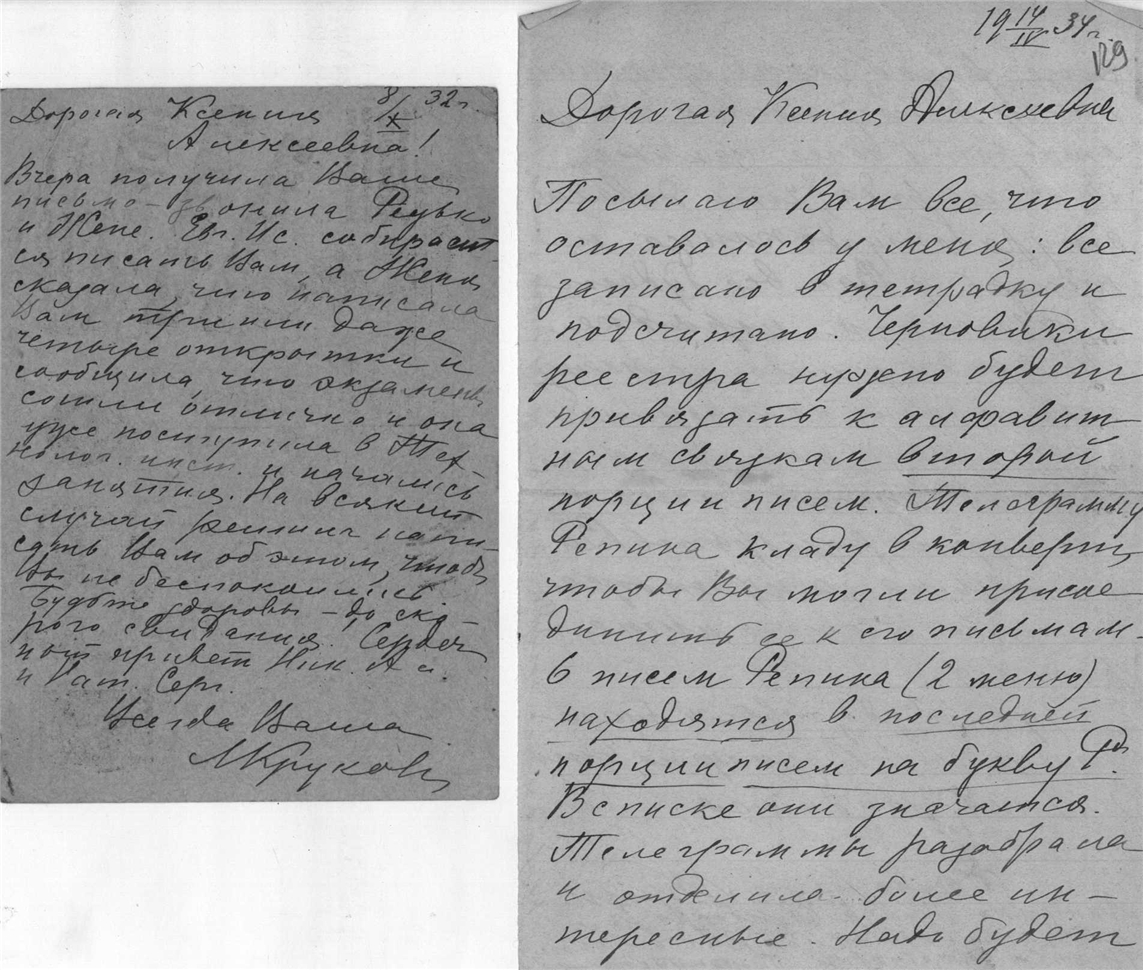 8/X 32 г.
Дорогая Ксения
Алексеевна!
Вчера получила Ваше
письмо – звонила Редько
и Жене. Евг. Ис. собирает-
ся писать Вам, а Женя
сказала, что написала
Вам три или даже
четыре открытки и
сообщила, что экзамены
сошли отлично и она
уже поступила в Тех-
нолог. инст. и начались
занятия. На всякий
случай решила напи-
сать Вам об этом, чтобы
Вы не беспокоились.
Будьте здоровы – до ско-
рого свидания! Сердеч
ный привет Ник. Ал.
и Нат. Серг.
Всегда Ваша
МКрукова
19 14/IV 34 г.
129
Дорогая Ксения Алексеевна
Посылаю Вам все, что
оставалось у меня: все
записано в тетрадку и
подсчитано. Черновики
реестра нужно будет
привязать к алфавит
ным связкам второй
порции писем. Телеграмму
Репина кладу в конверт,
чтобы Вы могли присое
динить ее к его письмам.
6 писем Репина (2 меню)
находятся в последней
порции писем на букву Р.
В списке они значатся.
Телеграммы разобрала
и отделила более ин-
тересные. Надо будет